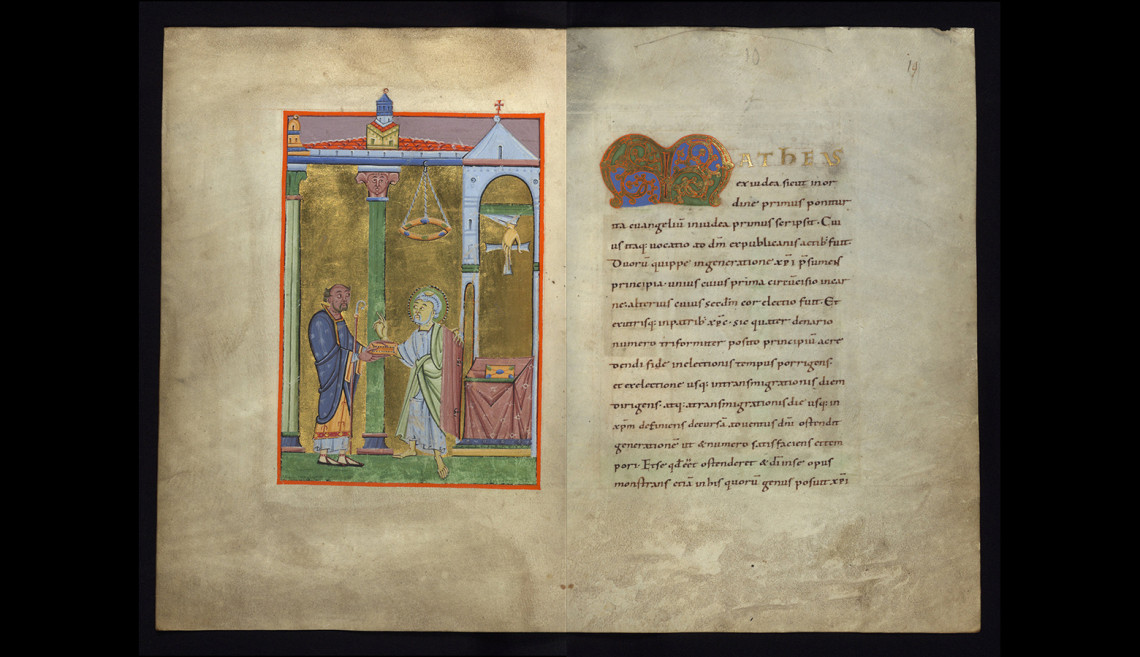 19
MATHEUS
ex iudea sicut in or
dine primus ponitur
ita evangeliū in iudea primus scripsit· Cui
us itaq; uocatio ad dm̄ ex publicanis actib; fuit·
Duorū quippe in generatione xp̄i p̄sumens
principia· unius cuius prima circūcisio in car
ne· alterius cuius scd̄m cor electio fuit· Et
ex utrisq; in patrib; xp̄c· sic quater denario
numero triformiter posito principiū a cre
dendi fide in electionis tempus porrigens·
et ex electione usq; in transmigrationis diem
dirigens· atq; a transmigrationis die usq; in
xp̄m definiens decursā aduentus dn̄i ostendit
generationē ut & numero satisfaciens et tem
pori· Et se qđ eēt ostenderet & dī in se opus
monstrans etiā in his quorū genus posuit xp̄i